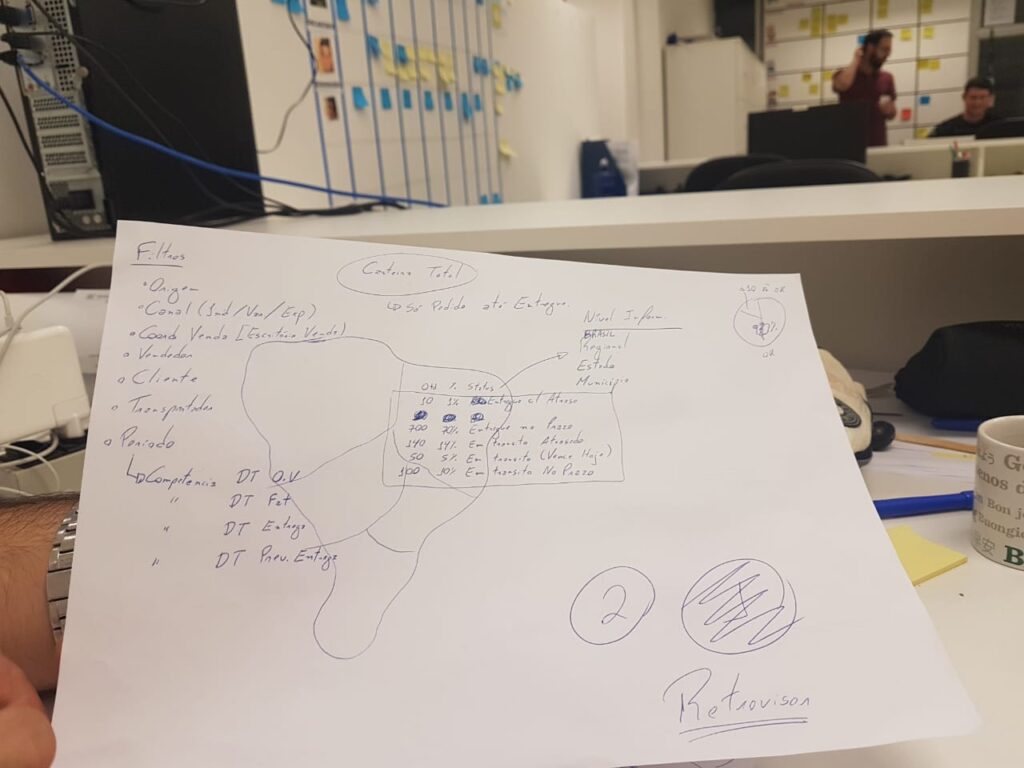 Filtros
Origem
Canal (Ind/Var/Exp)
Coord Venda [Escritório Venda)
Vendedor
Cliente
Transportador
Período
Competência DT O.V
" DT Fat
" DT Entrega
" DT Prev. Entrega
Carteira Total
Só Pedido até Entregue.
Nível Inform.
BRASIL
Regional
Estado
Município
% Status
10 1% Entregue c/ Atraso
700 70% Entregue no Prazo
140 14% Em transito Atrasado
50 5% Em transito (Vence Hoje)
100 10% Em transito No Prazo
OK
2
Retrovisor